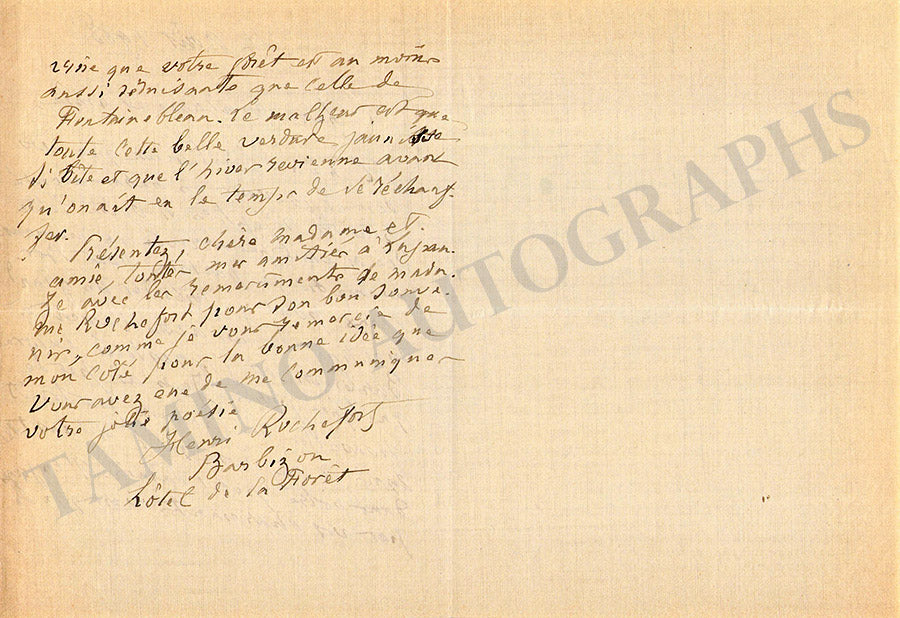 que votre forêt est au moins
aussi séduisante que celle de
Fontainebleau. Le malheur est que
toute cette belle verdure jaunisse
si vite et que l'hiver revienne avant
qu'on ait eu le temps de se réchauf-
fer.
Présentez, chère madame et
amie, toutes mes amitiés à
avec les remerciments de mada-
me Rochefort pour son bon souve-
nir, comme je vous remercie de
mon côté pour la bonne idée que
vous avez eue de me communiquer
votre jolie poésie
Henri Rochefort
Barbizon
hôtel de la Forêt
TAMINO AUTOGRAPHS